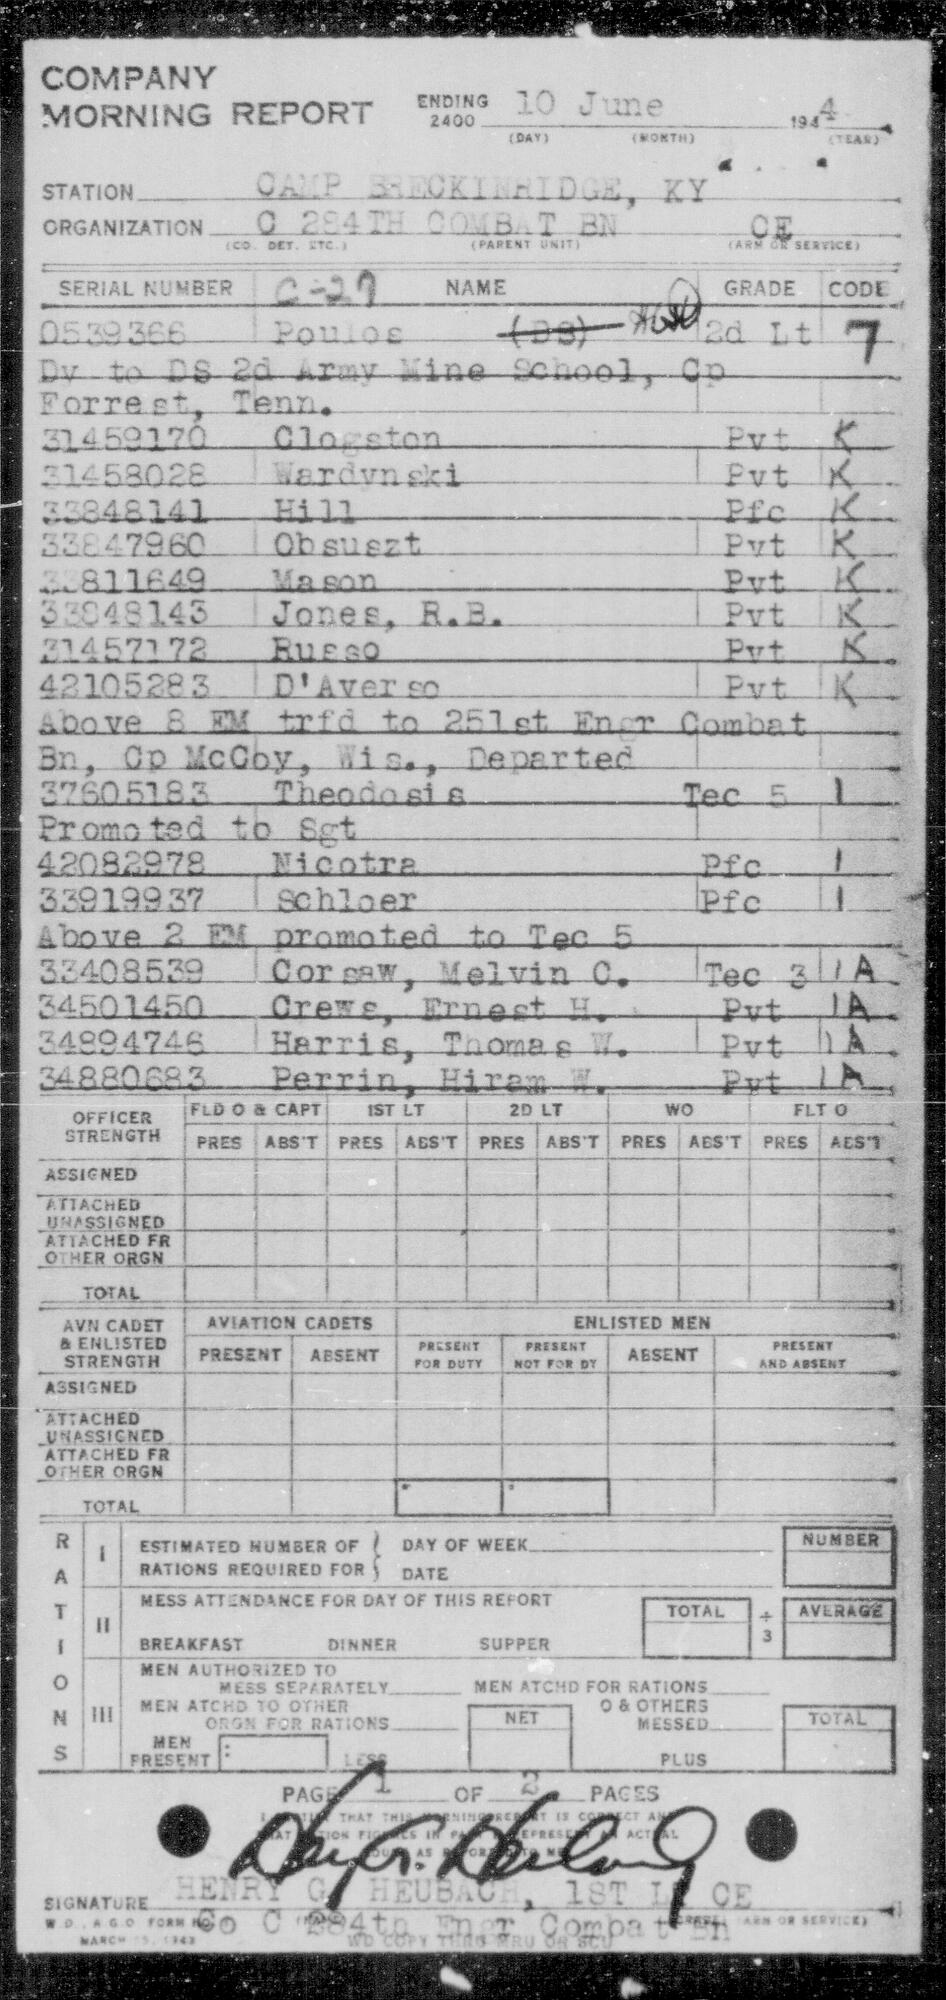 COMPANY
MORNING REPORT ENDING 2400 10 June 1944
(DAY) (MONTH) (YEAR)
STATION CAMP BRECKINRIDGE, KY
ORGANIZATION C 284TH COMBAT BN CE
(CO. DET. ETC.) (PARENT UNIT) (ARM OR SERVICE)
SERIAL NUMBER C-27 NAME GRADE CODE
0539366 Poulos (DS) 2d Lt 7
Dy to DS 2d Army Mine School, Cp
Forrest, Tenn.
31459170 Clogston Pvt K
31458028 Wardynski Pvt K
33848141 Hill Pfc K
33847960 Obsuszt Pvt K
33811649 Mason Pvt K
33848143 Jones, R.B. Pvt K
31457172 Russo Pvt K
42105283 D'Averso Pvt K
Above 8 EM trfd to 251st Engr Combat
Bn, Cp McCoy, Wis., Departed
37605183 Theodosis Tec 5 1
Promoted to Sgt
42082978 Nicotra Pfc 1
33919937 Schloer Pfc 1
Above 2 EM promoted to Tec 5
33408539 Corsaw, Melvin C. Tec 3 1A
34501450 Crews, Ernest H. Pvt 1A
34894746 Harris, Thomas W. Pvt 1A
34880683 Perrin, Hiram W. Pvt 1A
OFFICER STRENGTH FLD O & CAPT 1ST LT 2D LT WO FLT O
PRES ABS'T PRES ABS'T PRES ABS'T PRES ABS'T PRES ABS'T
ASSIGNED
ATTACHED
UNASSIGNED
ATTACHED FR
OTHER ORGN
TOTAL
AVN CADET & ENLISTED STRENGTH AVIATION CADETS ENLISTED MEN
PRESENT ABSENT PRESENT FOR DUTY PRESENT NOT FOR DY ABSENT PRESENT AND ABSENT
ASSIGNED
ATTACHED
UNASSIGNED
ATTACHED FR
OTHER ORGN
TOTAL
RATIONS
I ESTIMATED NUMBER OF DAY OF WEEK NUMBER
RATIONS REQUIRED FOR DATE
II MESS ATTENDANCE FOR DAY OF THIS REPORT TOTAL ÷ 3 AVERAGE
BREAKFAST DINNER SUPPER
III MEN AUTHORIZED TO
MESS SEPARATELY MEN ATCHD FOR RATIONS
MEN ATCHD TO OTHER O & OTHERS
ORGN FOR RATIONS NET MESSED TOTAL
MEN
PRESENT LESS PLUS
PAGE 1 OF 2 PAGES
THAT THIS MORNING REPORT IS CORRECT
SIGNATURE HENRY G. HEUBACH, 1ST LT CE
W.D., A.G.O. FORM NO. Co C 284th Engr Combat Bn (ARM OR SERVICE)
MARCH 15, 1943 WD COPY THRU MRU OR SCU